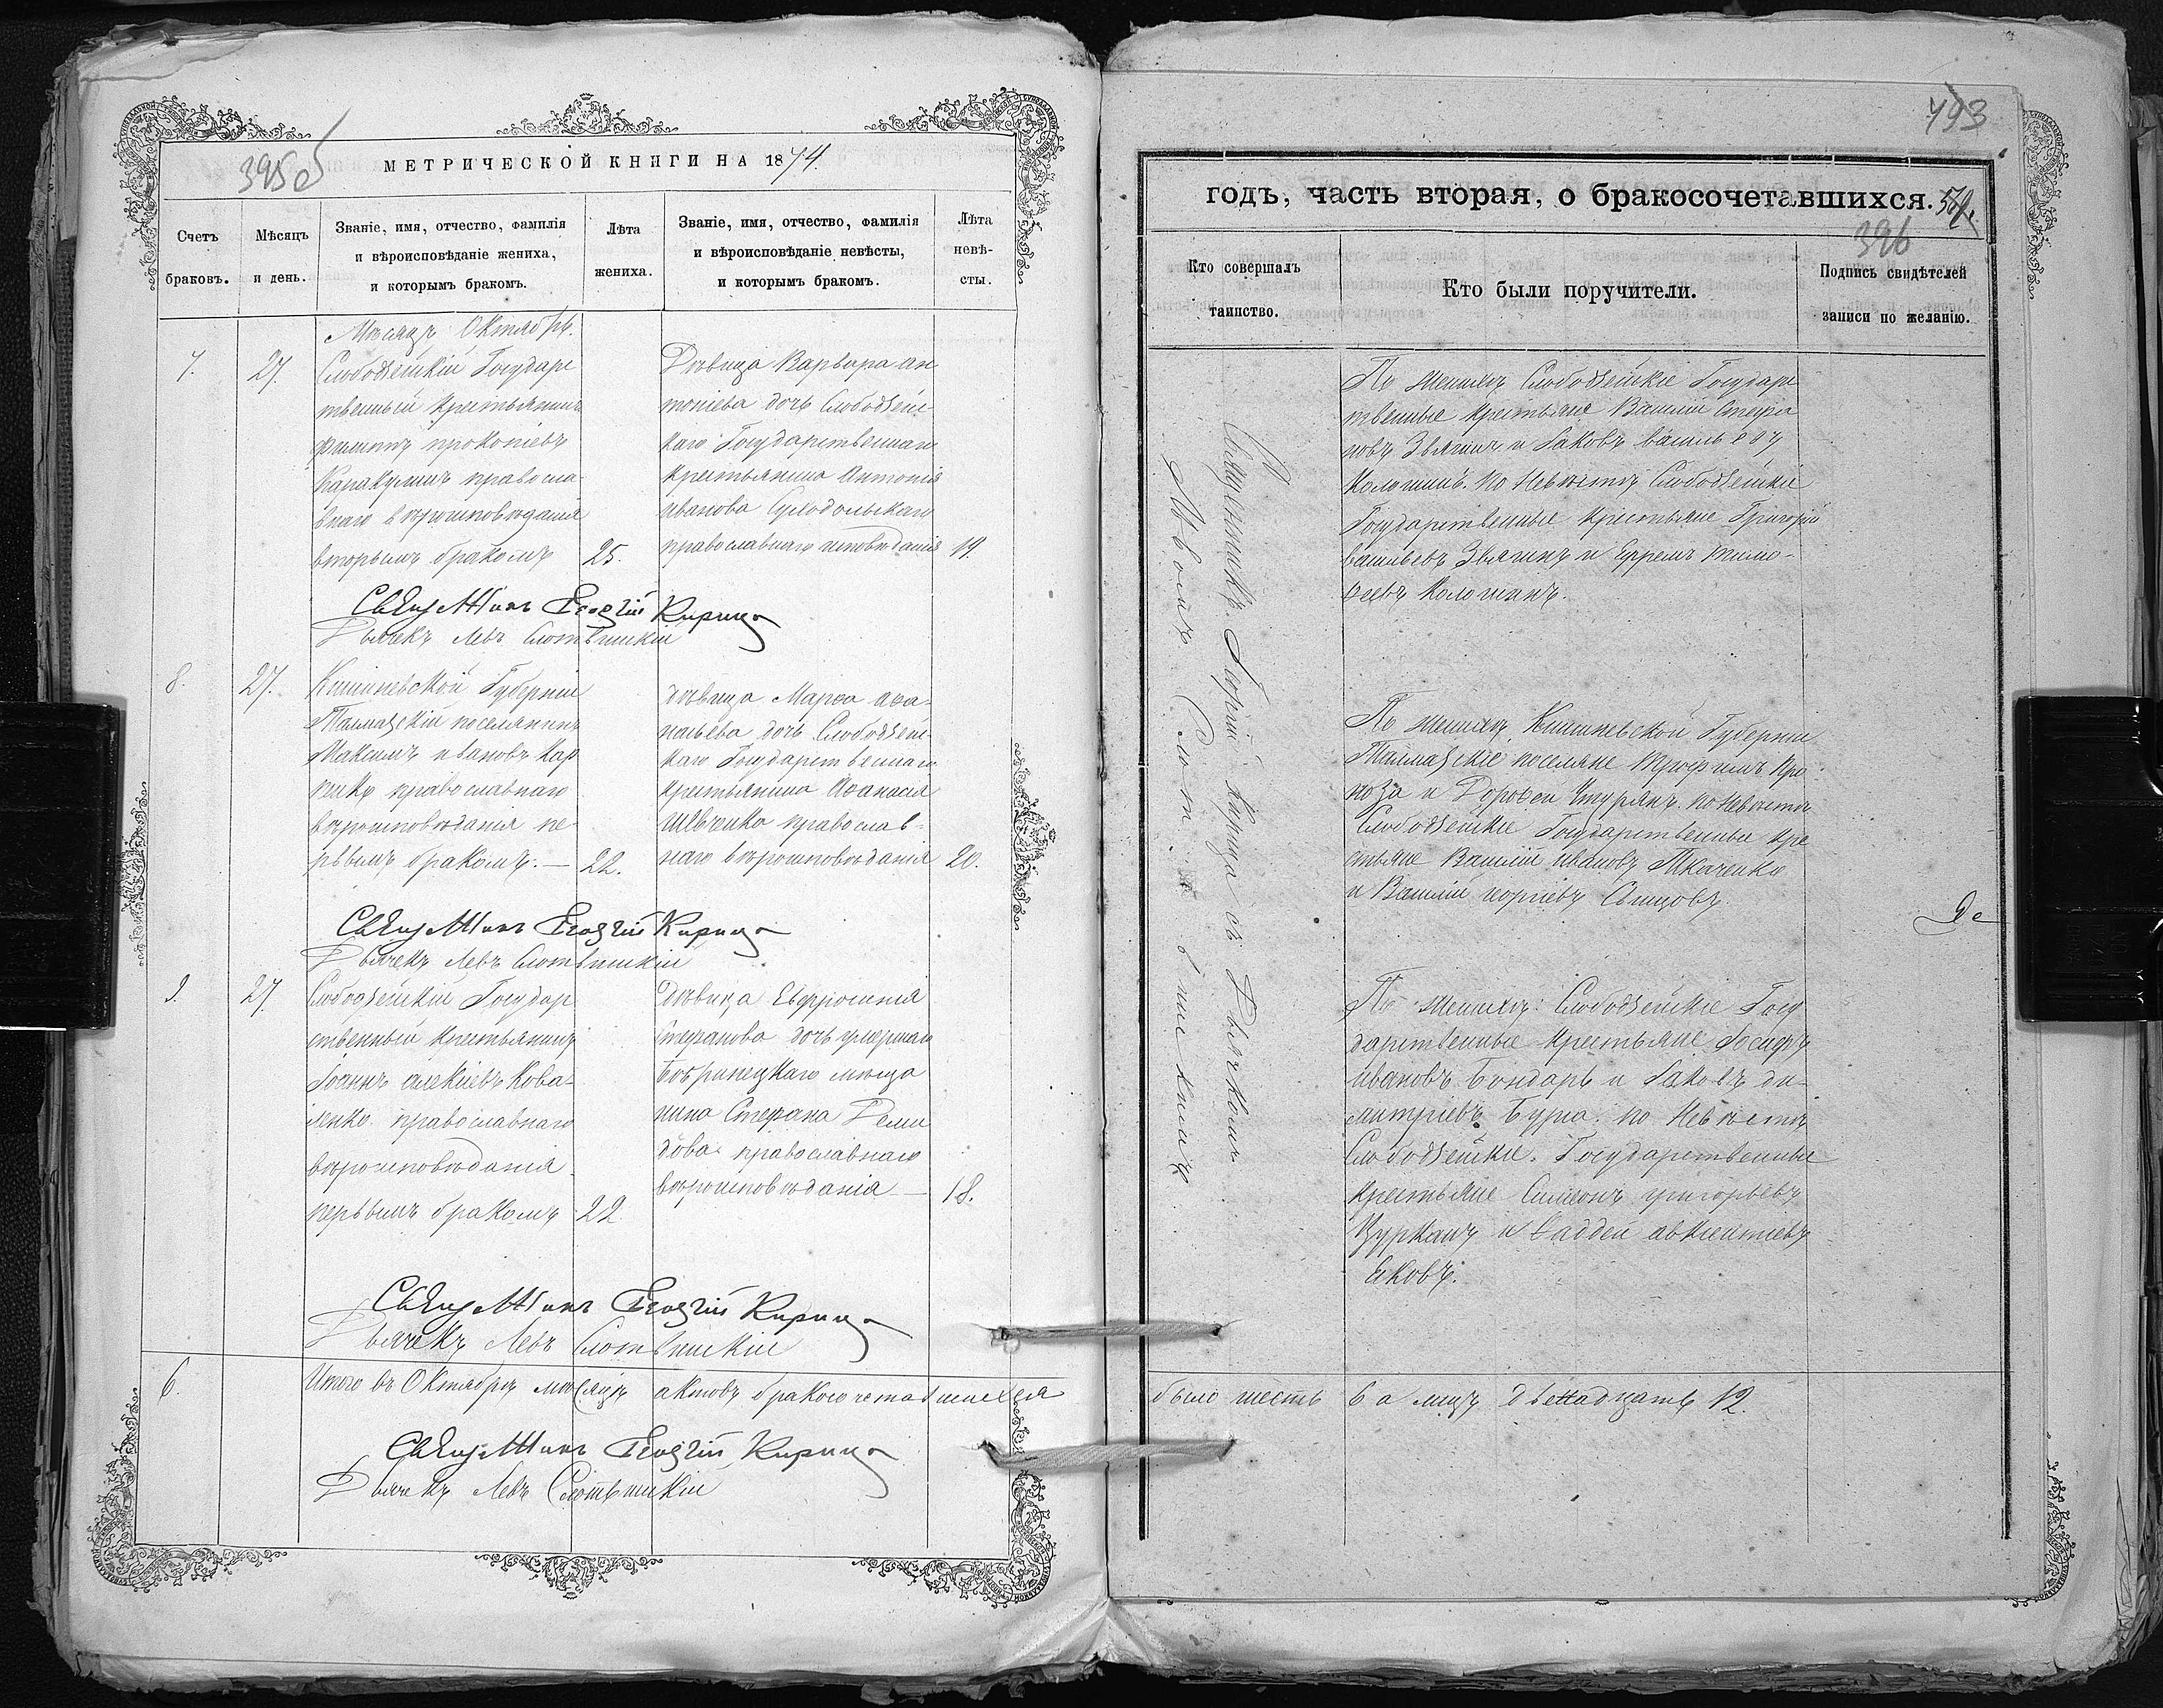 395 об
МЕТРИЧЕСКОЙ КНИГИ НА 1874.
Счетъ браковъ.
Мѣсяцъ и день.
Званіе, имя, отчество, фамилія и вѣроисповѣданіе жениха, и которымъ бракомъ.
Лѣта жениха.
Званіе, имя, отчество, фамилія и вѣроисповѣданіе невѣсты, и которымъ бракомъ.
Лѣта невѣ-сты.
Мѣсяцъ Октябрь.
7.
27.
Слободзейскій Государс
твенный крестьянинъ
Филиппъ прокопіевъ
православ
наго вѣроисповѣданія
вторымъ бракомъ
25.
Дѣвица Варвара ан
тоніева дочь Слободзей-
скаго Государственнаго
крестьянина Антонія
иванова Суходольскаго
православнаго исповѣданія
19.
Священникъ Георгій Кирица
Дьячекъ Левъ Слотвинскій
8.
27.
Кишиневской Губерніи
Талмазскій поселянинъ
Максимъ ивановъ
православнаго
вѣроисповѣданія пе-
рвымъ бракомъ. —
22.
дѣвица Марѳа аѳа-
насьева дочь Слободзей-
скаго Государственнаго
крестьянина Аѳанасія
Шевченка православ-
наго вѣроисповѣданія
20.
Священникъ Георгій Кирица
Дьячекъ Левъ Слотвинскій
9.
27.
Слободзейскій Государ
ственный крестьянинъ
Іоаннъ алексіевъ Кова-
ленко православнаго
вѣроисповѣданія
первымъ бракомъ
22.
Дѣвица Евфросинія
Стефанова дочь умершаго
Бобринецкаго мѣща
нина Стефана Деми
дова православнаго
вѣроисповѣданія —
18.
Священникъ Георгій Кирица
Дьячекъ Левъ Слотвинскій
6.
Итого въ Октябрѣ мѣсяцѣ актовъ бракосочетавшихся
Священникъ Георгій Кирица
Дьячекъ Левъ Слотвинскій
793
годъ, часть вторая, о бракосочетавшихся.
396
Кто совершалъ таинство.
Кто были поручители.
Подпись свидѣтелей записи по желанію.
Священникъ Георгій Кирица съ Дьячкомъ
Львомъ Слотвинскимъ
По женихѣ Слободзейскіе Государс
твенные крестьяне Василій Стефа
новъ Звягинъ и Іаковъ васильевъ
Кологинъ. по Невѣстѣ Слободзейскіе
Государственные Крестьяне Григорій
васильевъ Звягинъ и Ефремъ тимо-
ѳеевъ Кологинъ.
По женихѣ Кишиневской Губерніи
Талмазскіе поселяне Трофимъ
и Дороѳей по Невѣстѣ
Слободзейскіе Государственные кре
стьяне Василій ивановъ Ткаченко
и Василій
По женихѣ: Слободзейскіе Госу
дарственные крестьяне Іосифъ
ивановъ Бондарь и Іаковъ ди-
митріевъ Бурла. по Невѣстѣ
Слободзейскіе. Государственные
крестьяне Симеонъ григорьевъ
Цурканъ и Ѳаддей авксентіевъ
было шесть 6 а лицъ двенадцать 12.